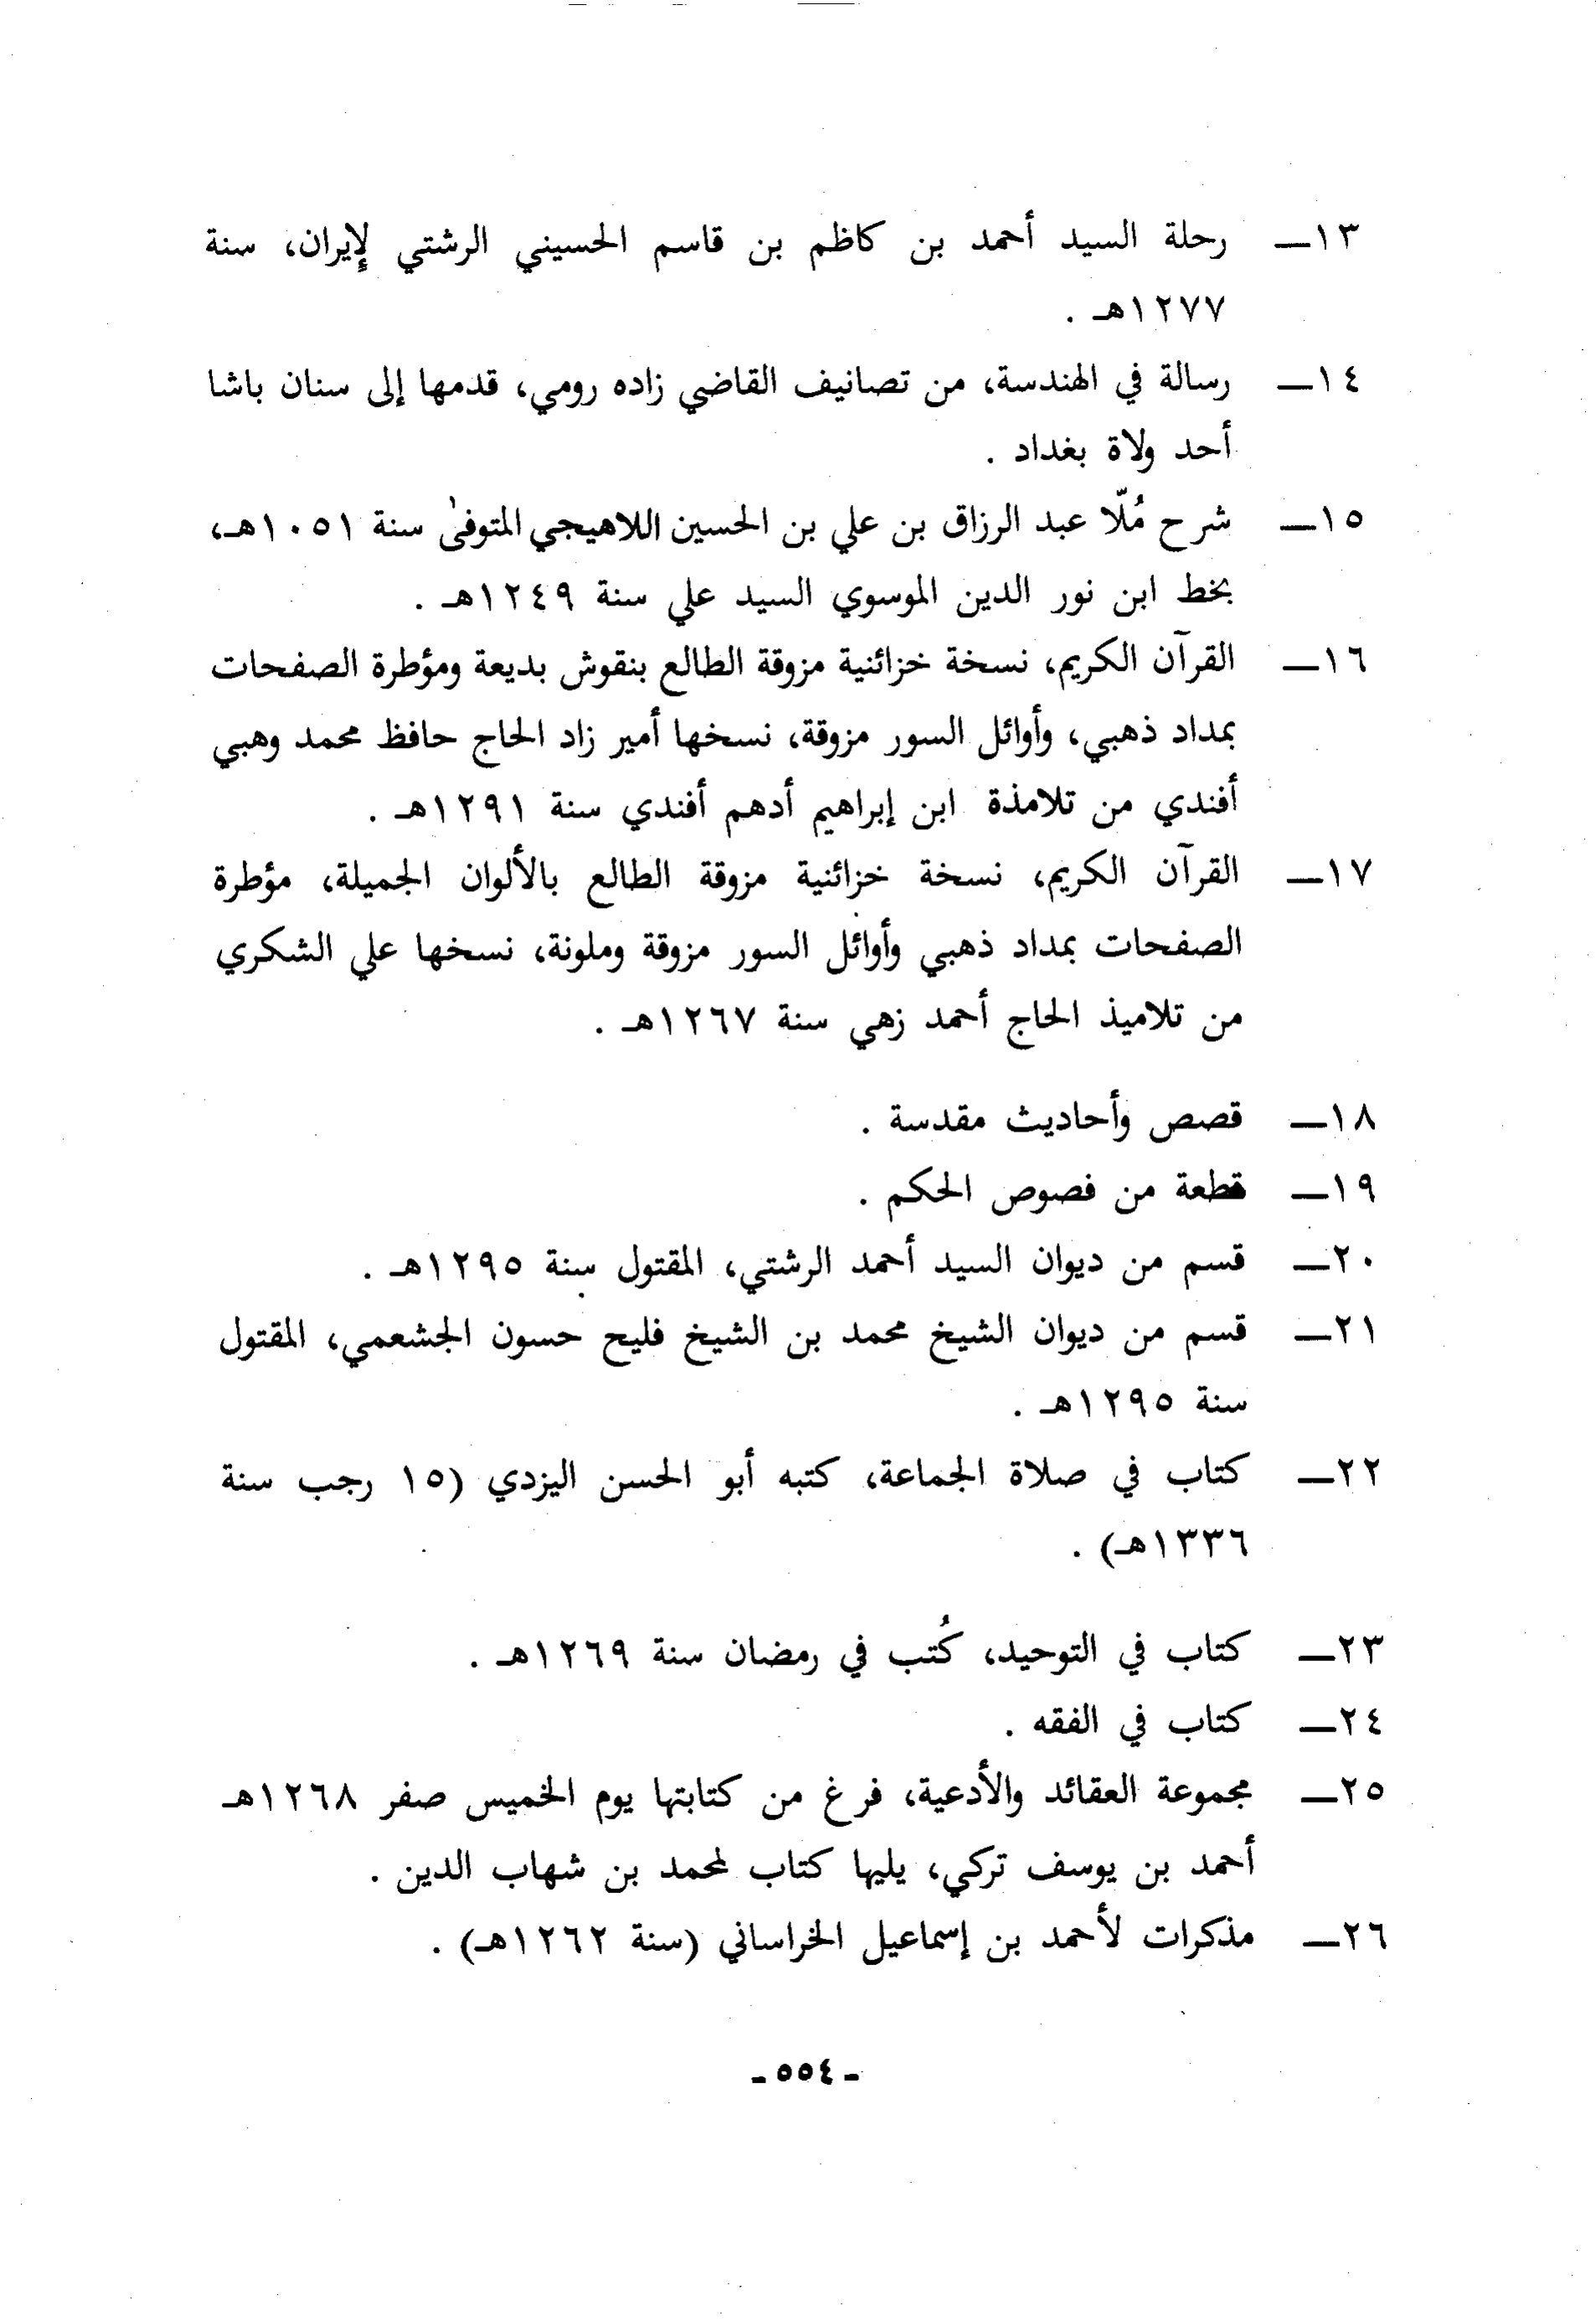 ١٣ــ رحلة السيد أحمد بن كاظم بن قاسم الحسيني الرشتي لإيران، سنة
١٢٧٧هـ .
١٤ــ رسالة في الهندسة، من تصانيف القاضي زاده رومي، قدمها إلى سنان باشا
أحد ولاة بغداد .
١٥ــ شرح مُلّا عبد الرزاق بن علي بن الحسين اللاهيجي المتوفىٰ سنة ١٠٥١هـ،
بخط ابن نور الدين الموسوي السيد علي سنة ١٢٤٩هـ .
١٦ــ القرآن الكريم، نسخة خزائنية مزوقة الطالع بنقوش بديعة ومؤطرة الصفحات
بمداد ذهبي، وأوائل السور مزوقة، نسخها أمير زاد الحاج حافظ محمد وهبي
أفندي من تلامذة ابن إبراهيم أدهم أفندي سنة ١٢٩١هـ .
١٧ــ القرآن الكريم، نسخة خزائنية مزوقة الطالع بالألوان الجميلة، مؤطرة
الصفحات بمداد ذهبي وأوائل السور مزوقة وملونة، نسخها علي الشكري
من تلاميذ الحاج أحمد زهي سنة ١٢٦٧هـ .
١٨ــ قصص وأحاديث مقدسة .
١٩ــ قطعة من فصوص الحكم .
٢٠ــ قسم من ديوان السيد أحمد الرشتي، المقتول سنة ١٢٩٥هـ .
٢١ــ قسم من ديوان الشيخ محمد بن الشيخ فليح حسون الجشعمي، المقتول
سنة ١٢٩٥هـ .
٢٢ــ كتاب في صلاة الجماعة، كتبه أبو الحسن اليزدي (١٥ رجب سنة
١٣٣٦هـ) .
٢٣ــ كتاب في التوحيد، كُتب في رمضان سنة ١٢٦٩هـ .
٢٤ــ كتاب في الفقه .
٢٥ــ مجموعة العقائد والأدعية، فرغ من كتابتها يوم الخميس صفر ١٢٦٨هـ
أحمد بن يوسف تركي، يليها كتاب لمحمد بن شهاب الدين .
٢٦ــ مذكرات لأحمد بن إسماعيل الخراساني (سنة ١٢٦٢هـ) .
- ٥٥٤ -